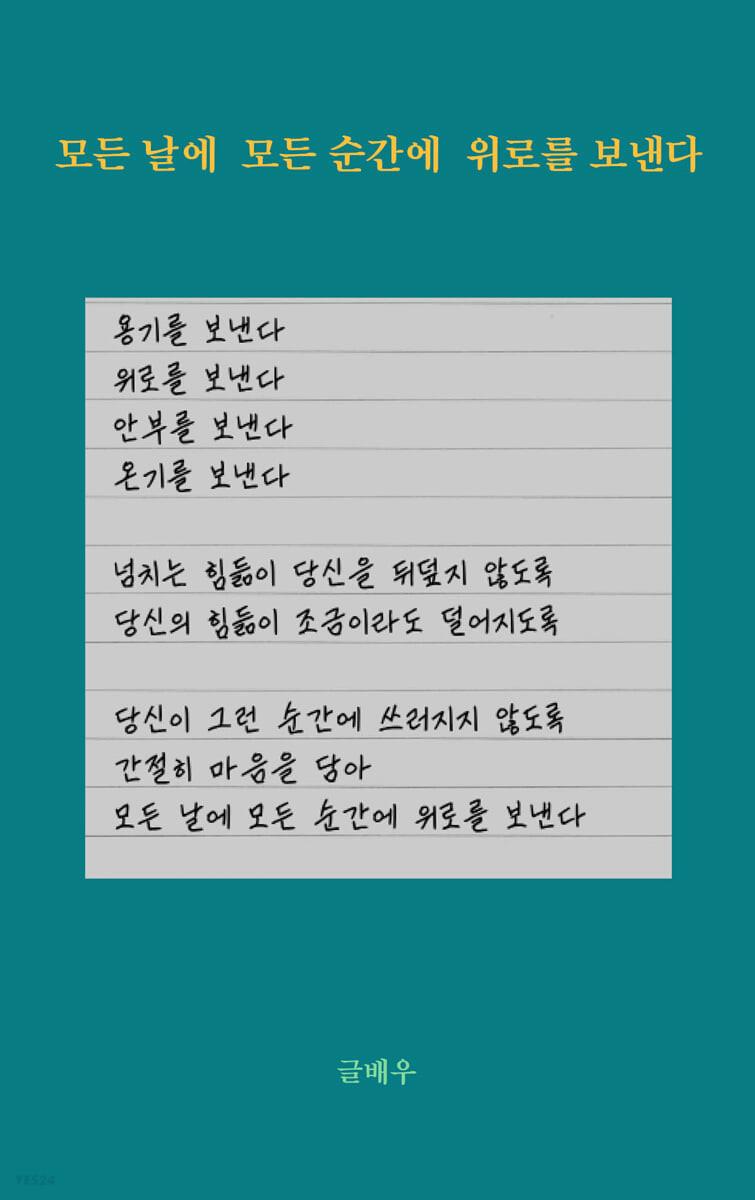 모든 날에 모든 순간에 위로를 보낸다
용기를 보낸다
위로를 보낸다
안부를 보낸다
온기를 보낸다
넘치는 힘듦이 당신을 뒤덮지 않도록
당신의 힘듦이 조금이라도 덜어지도록
당신이 그런 순간에 쓰러지지 않도록
간절히 마음을 담아
모든 날에 모든 순간에 위로를 보낸다
글배우
YES24